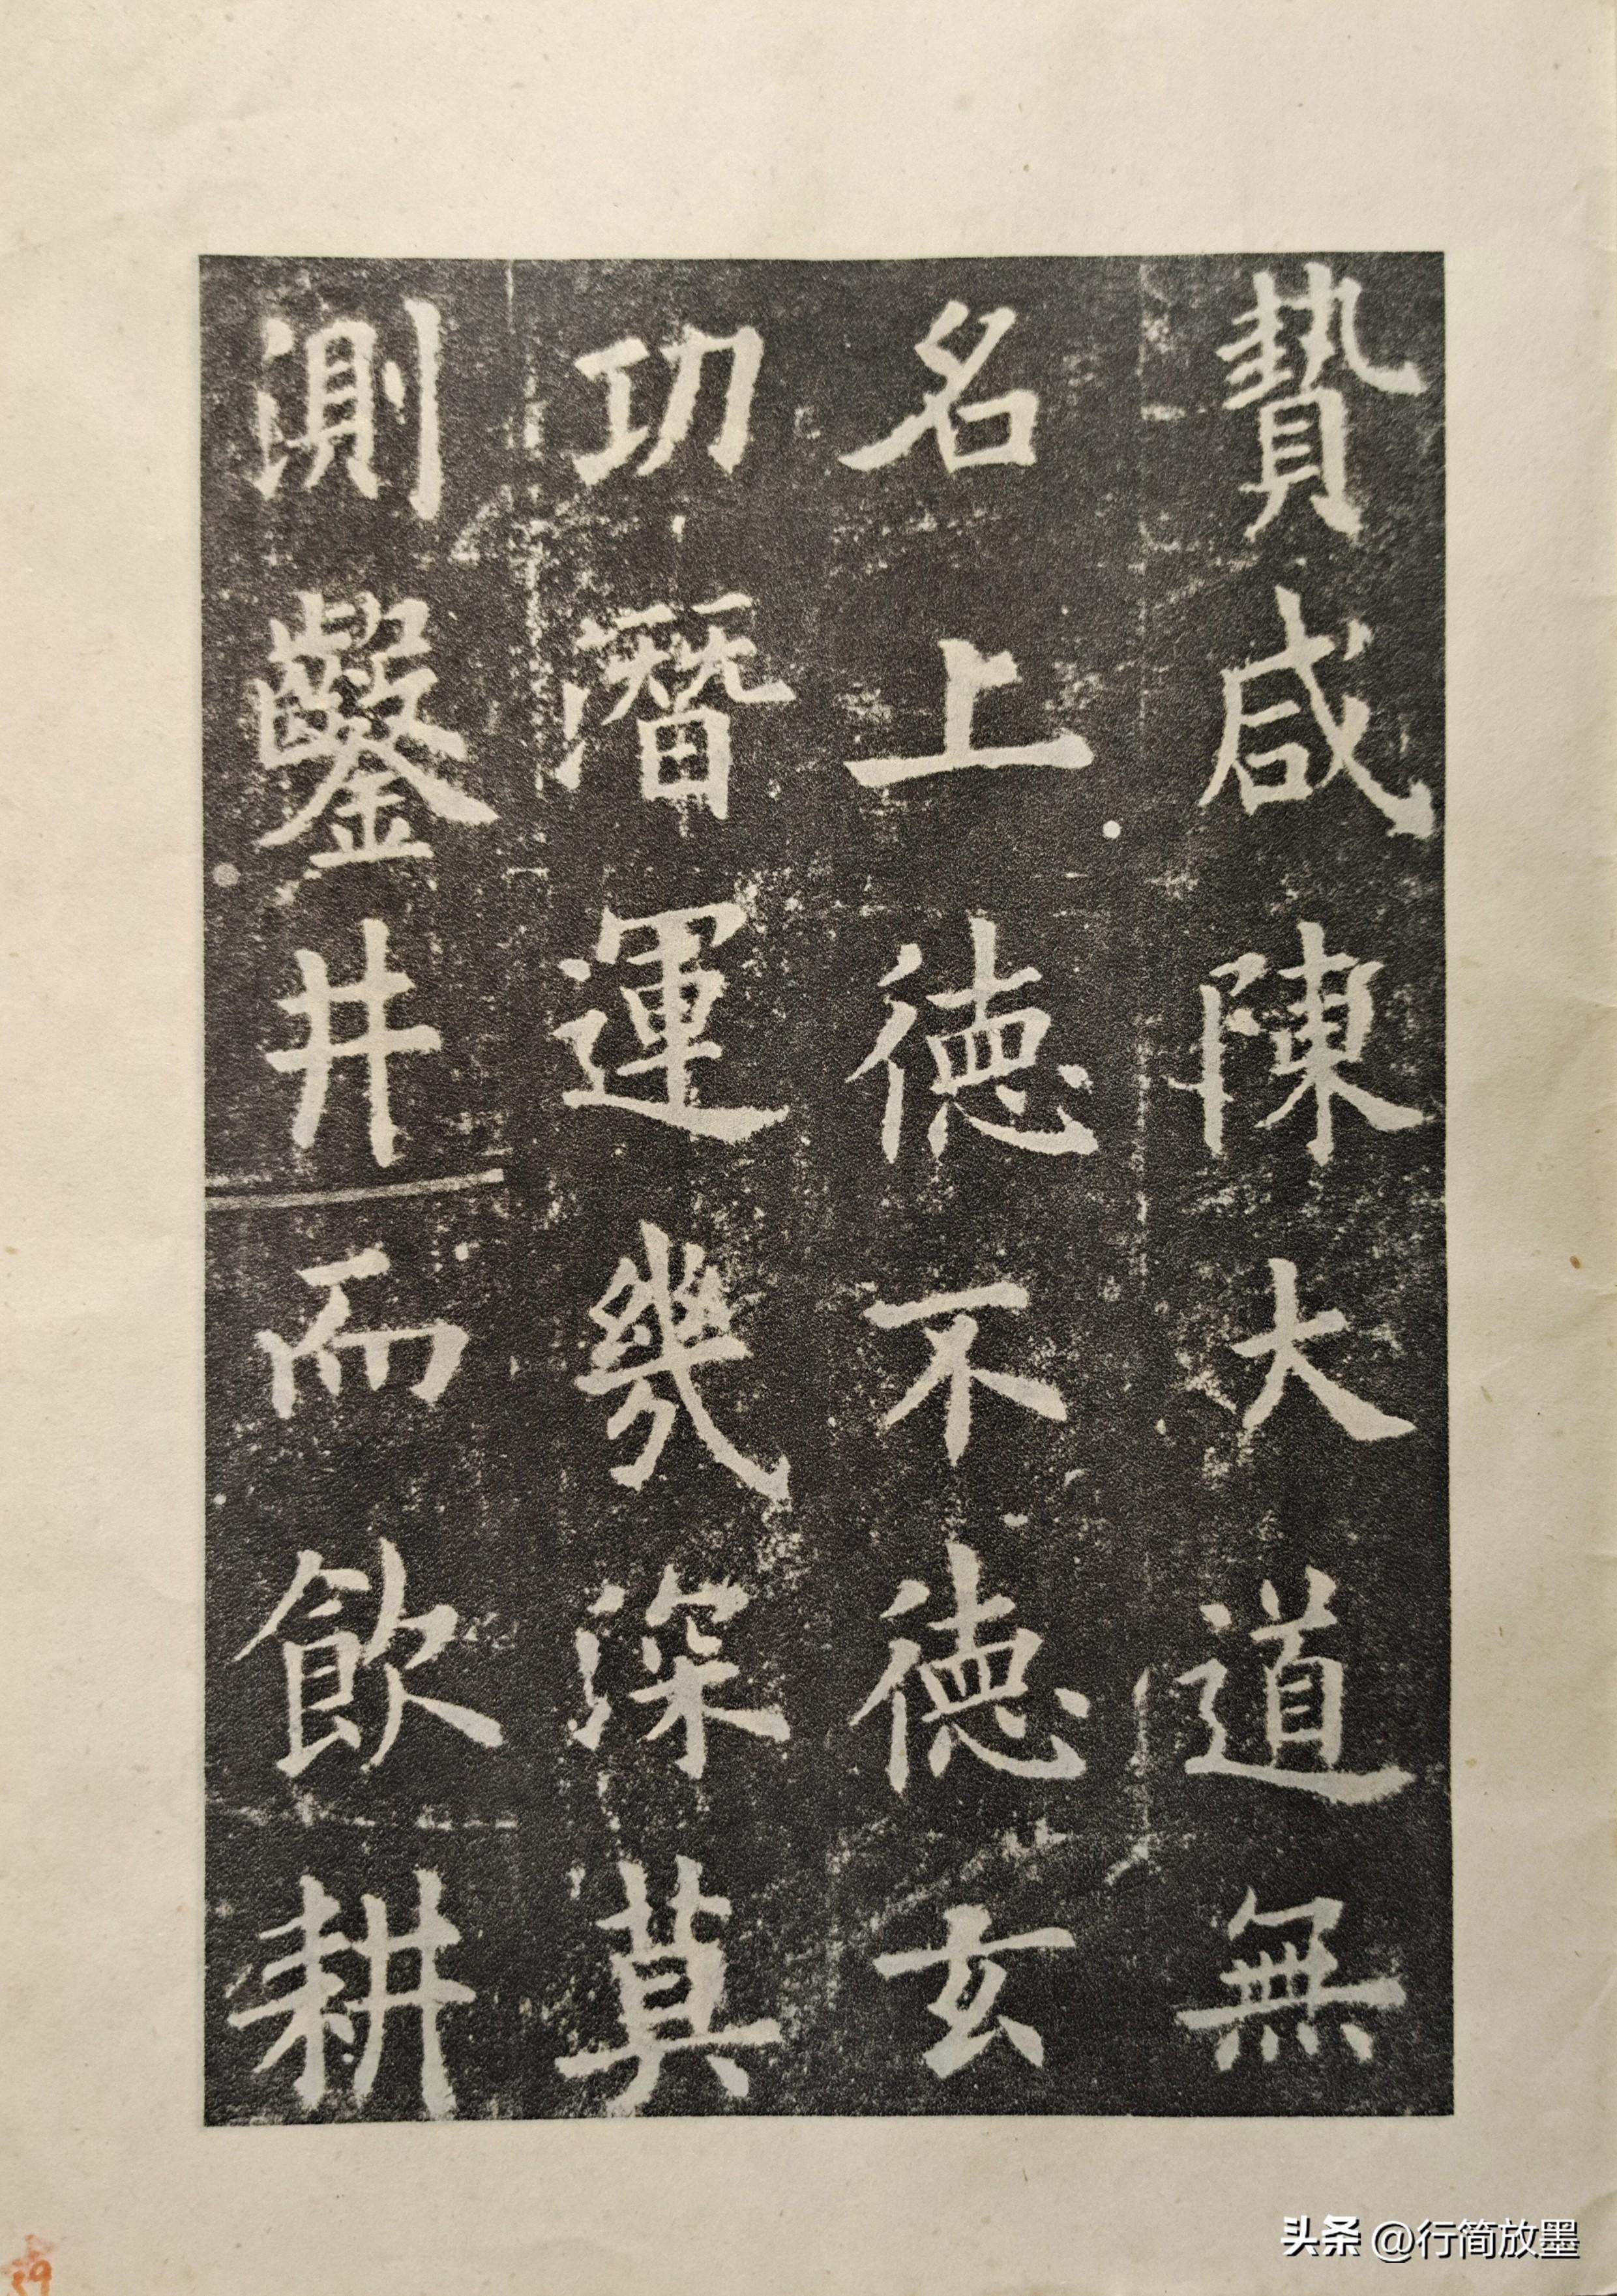 贄咸陳大道無
名上德不德玄
功潛運幾深莫
測鑿井而飲耕
头条 @行简放墨